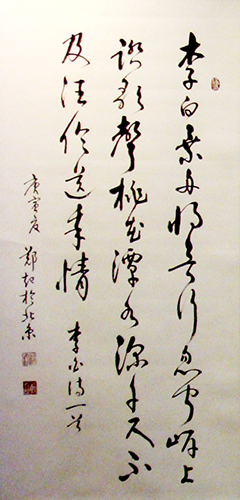 李白乘舟将欲行忽闻岸上
踏歌声桃花潭水深千尺不
及汪伦送我情 李白诗一首
庚寅夏 郑起于北京